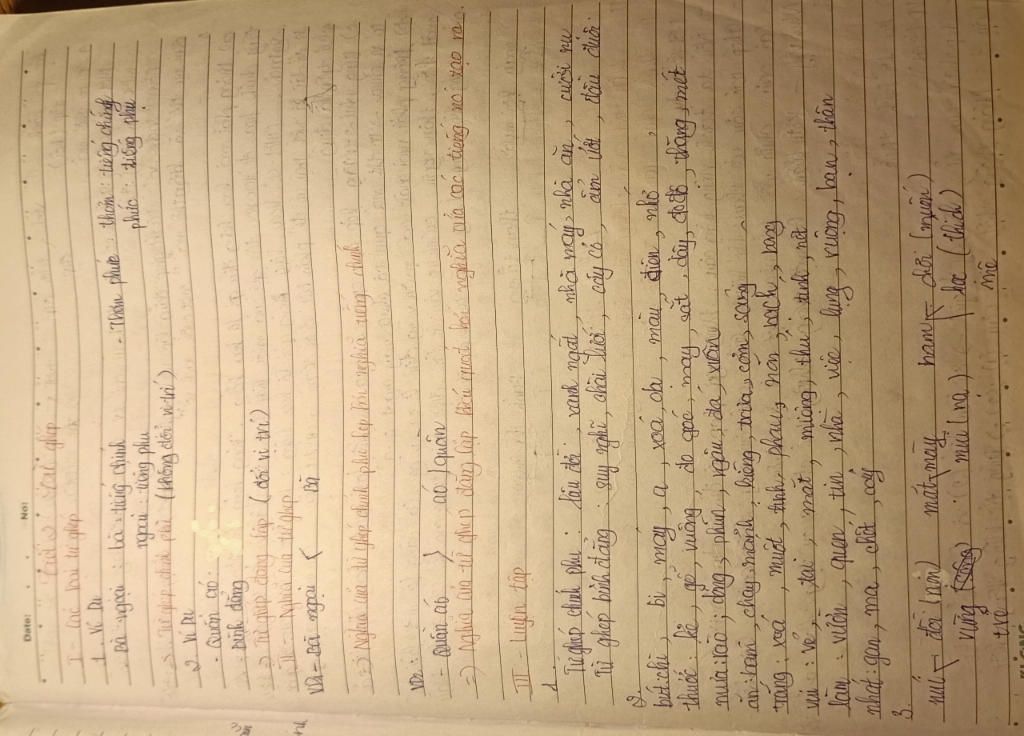 Date: No:
Bài 2 Từ ghép
I - Các loại từ ghép
1. Ví Dụ
- Bà ngoại : bà : tiếng chính - Thơm phức : thơm : tiếng chính
ngoại : tiếng phụ phức : tiếng phụ
=> Từ ghép chính phụ (không đổi vị trí)
2 Ví Dụ
- Quần áo
Bình đẳng
=> Từ ghép đẳng lập (đổi vị trí)
II - Nghĩa của từ ghép
VD - Bà ngoại < Bà
=> Nghĩa của từ ghép chính phụ hẹp hơn nghĩa tiếng chính
VD:
- Quần áo > áo, quần
=> Nghĩa của từ ghép đẳng lập khái quát hơn nghĩa của các tiếng nó tạo ra.
III - Luyện tập
1
Từ ghép chính phụ : lâu đời, xanh ngắt, nhà máy, nhà ăn, cười nụ
Từ ghép bình đẳng : suy nghĩ, chài lưới, cây cỏ, ẩm ướt, đầu đuôi.
2
bút : chì, bi, máy, xoá, da, màu, điện, nhỏ
thước : kẻ, gỗ, vuông, đo góc, may, sắt, dây, đo độ, thẳng, mét
mưa : rào, dông, phùn, ngâu, đá, xuân
ăn : bám, cháy, mảnh, bỗng, trưa, cơm, sáng
trắng : xoá, muốt, tinh, phau, nõn, bạch, bong
vui : vẻ, tai, mắt, miệng, thú, tính, nết
làm : vườn, quen, tin, nhà, việc, lụng, ruộng, bạn, thân
nhát : gan, ma, chết, cáy
3.
núi - đồi (non) mặt - mày ham - dối (muốn)
vững mũi (nạ) học (thích)
tre mê